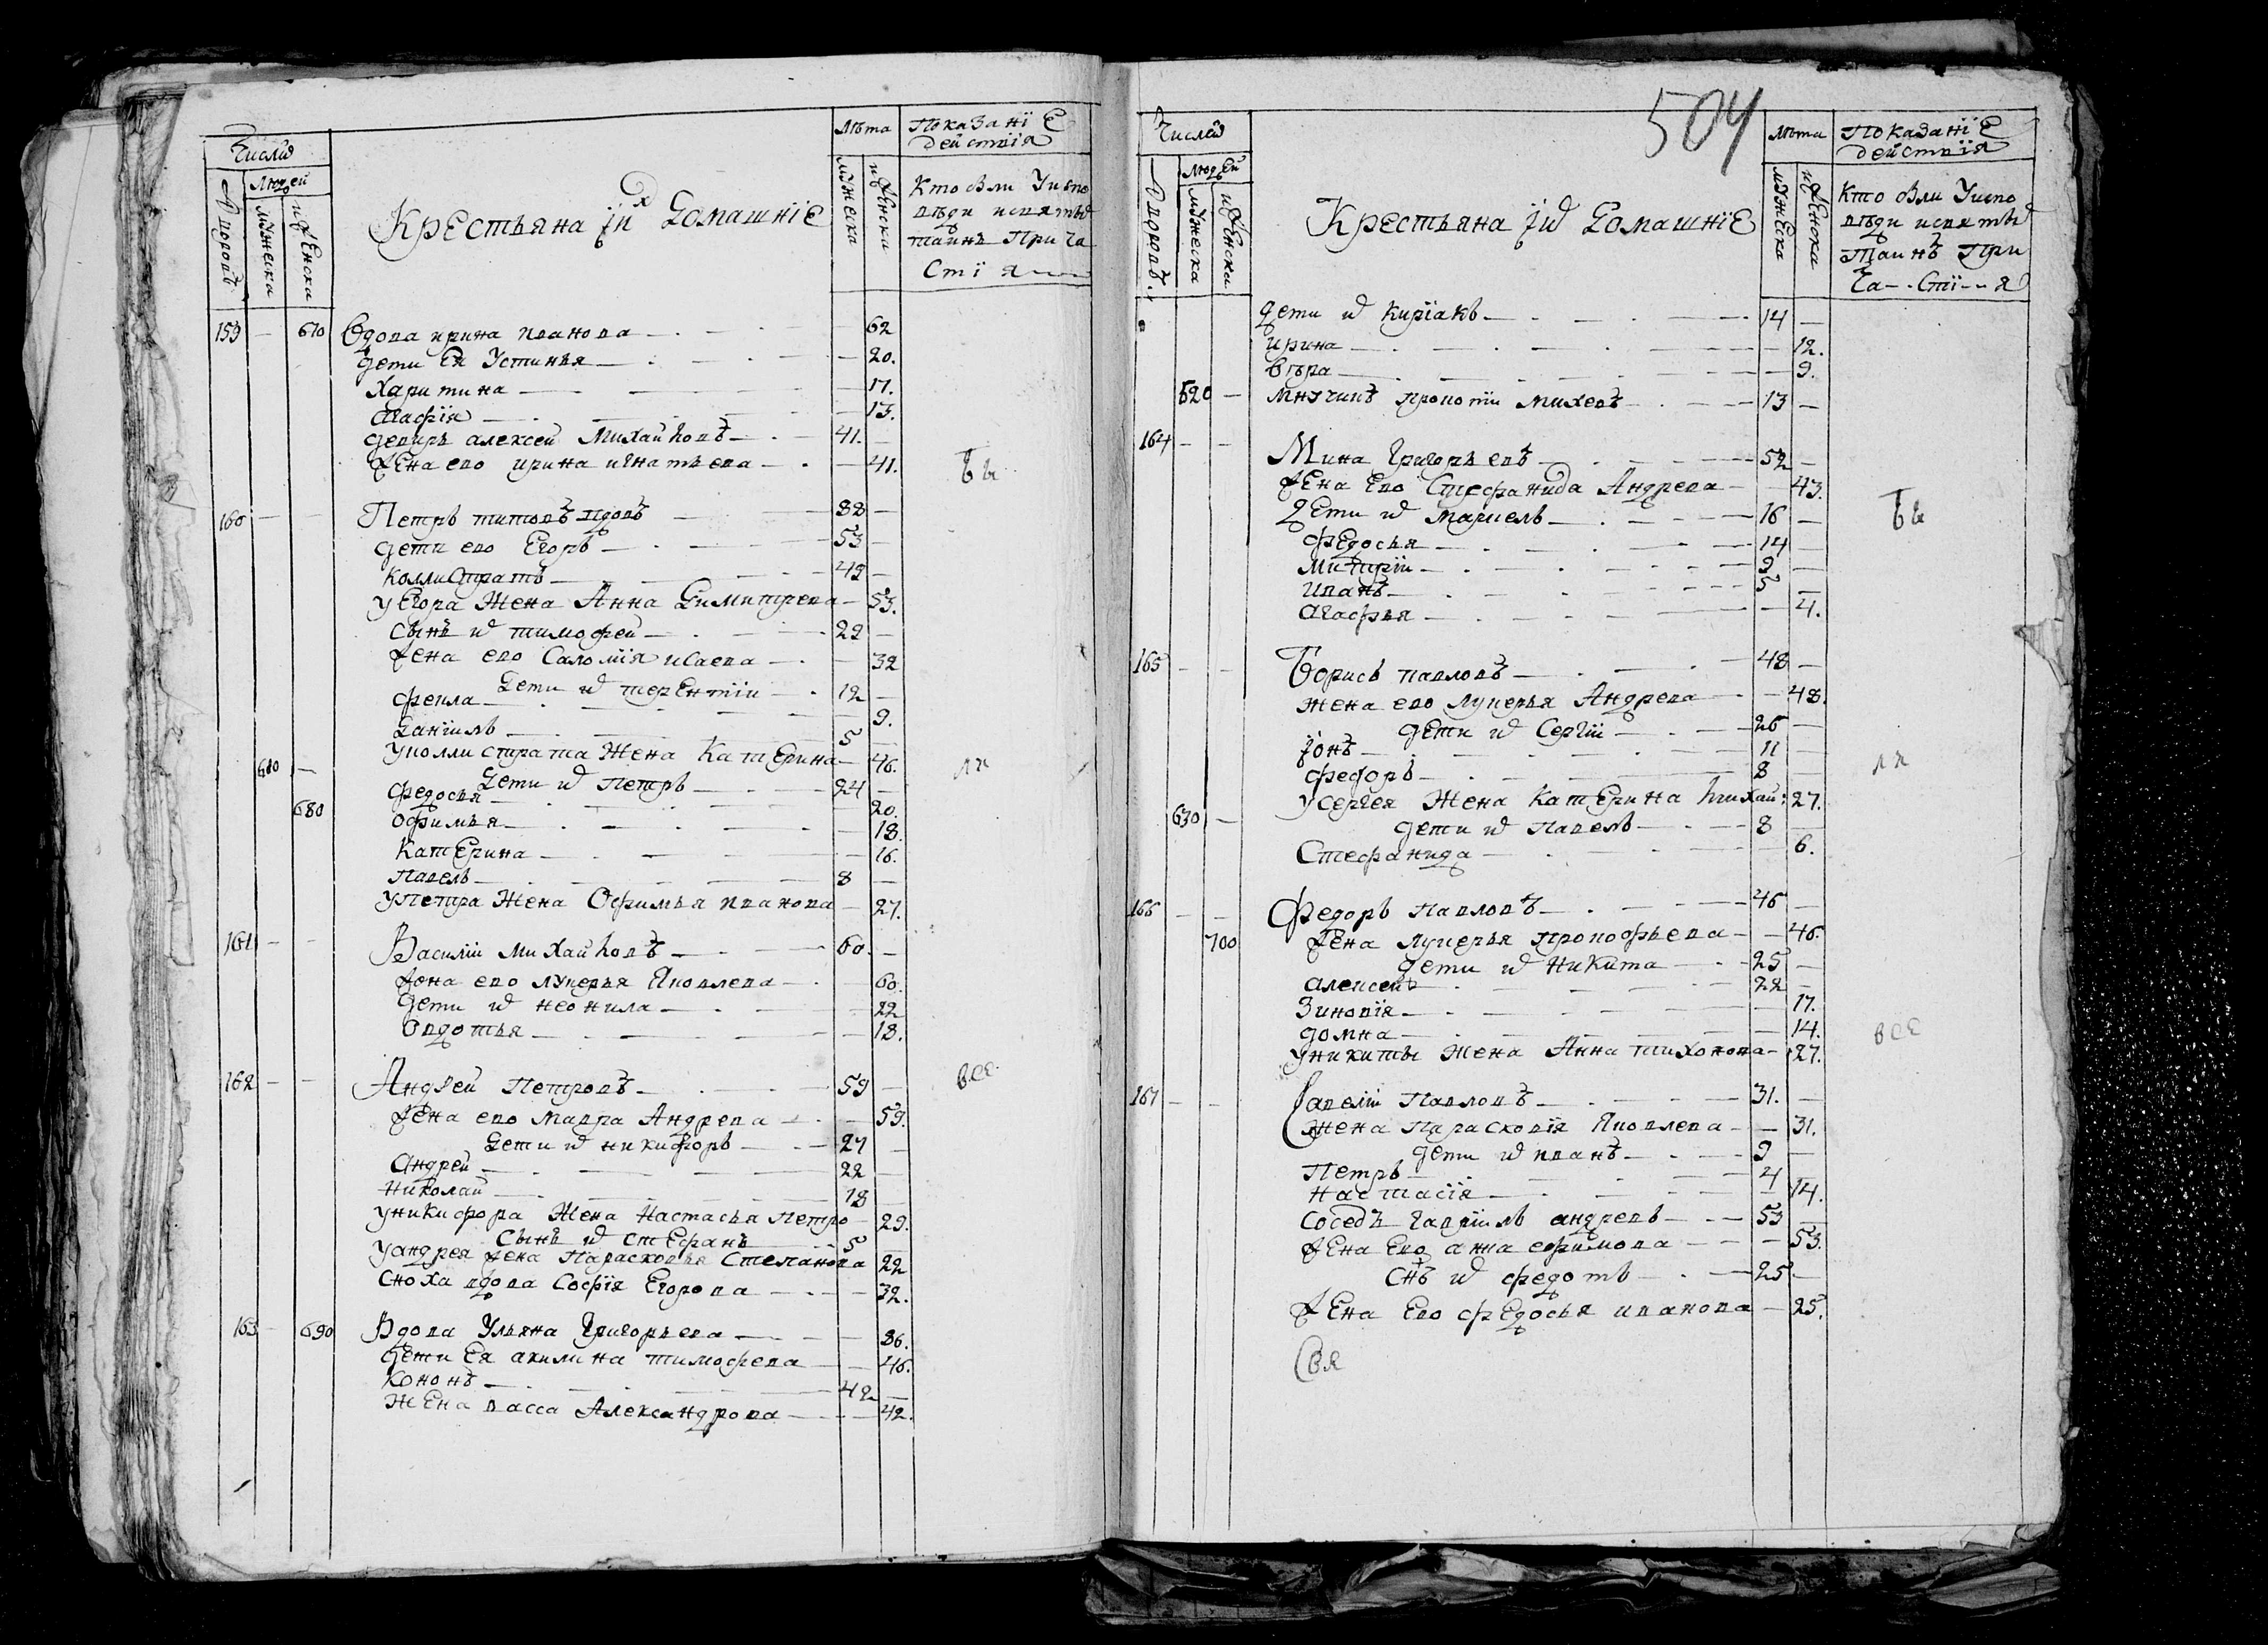 Числа
Людей
Дворовъ
мужеска
женска
Крестьяна їих Домашнїе
Лѣта
мужеска
женски
Показанїе
действїя
Кто был У испо
вѣди исвятых
таинъ Прича
Стїя
159 — 670 Вдова ирина иванова — 62
дети Ея Устинья — 20.
Харитина — 17.
Агафїя — 13.
деверь алексей Михайловъ — 41. —
жена ево ирина игнатьева — 41.
бы
160 — — Петръ титовъ вдовъ — 82 —
дети ево Егоръ — 53 —
Коллистратъ — 49 —
у Егора Жена Анна Димитрева — 53.
сынъ их тимофей — 29 —
жена ево Саломїя исаева — 32
Дети их терентїи — 12 —
фекла — 9.
Данїилъ — 5 —
у коллистрата Жена Катерина — 46.
680 — Дети их Петръ — 24 —
лѣ
680 федосья — 20.
офимья — 18.
Катерина — 16.
Павелъ — 8 —
у Петра Жена Офимья иванова — 27.
161 — — Василїи Михайловъ — 60. —
жона ево лукерья Яковлева — 60.
дети их неонила — 22
Овдотья — 18.
162 — — Андрей Петровъ — 59 —
все
жена ево мавра Андрева — 59.
Дети их никифоръ — 27 —
Андрей — 22 —
Николай — 18 —
у никифора Жена Настасья Петро — 29.
Сынъ их стефанъ — 5 —
у андрея жена Парасковья Степанова 22
Сноха вдова Софїя Егорова — 32.
163 — 690 Вдова Ульяна Григорьева — 86.
дети Ея акилина тимофева — 46.
Кононъ — 42 —
Жена васса Александрова — 42.
504
Числа
Людей
Дворовъ.
мужеска
женски
Крестьяна їих Домашнїе
Лѣта
мужеска
женска
Показанїе
действїя
Кто был У испо
вѣди исвятых
Таинъ При
Ча — Стї — я
дети их Кирїакъ — 14 —
ирина — 12.
вѣра — 9.
620 — Внучикъ прокопїи михевъ — 13 —
164 — — Мина Григорьевъ — 52 —
жена Ево Стефанида Андрева — 43.
дети их мануелъ — 16 —
бы
федосья — 14 —
Митрїи — 9 —
иванъ — 5 —
агафья — 4.
165 — — Борисъ павловъ — 48 —
жена ево лукерья Андрева — 48.
дети их Сергїи — 26 —
їонъ — 11 —
федоръ — 8 —
лѣ
у сергея Жена Катерина михай: 27.
630 — дети их Павелъ — 8 —
Стефанида — 6.
166 — — Федоръ Павловъ — 46 —
700 жена лукерья прокофьева — 46.
дети их Никита — 25 —
алексей — 22 —
Зиновїя — 17.
домна — 14.
все
у никиты жена Анна тихонова — 27.
167 — — Савелїи Павловъ — 31. —
Жена Парасковїя Яковлева — 31.
дети их иванъ — 9 —
Петръ — 4
настасїя — 14.
Соседъ гаврїилъ андревъ — 53 —
жена Ево анна ефимова — 53.
Снъ их федотъ — 25 —
жена Ево федосья иванова — 25.
Свя